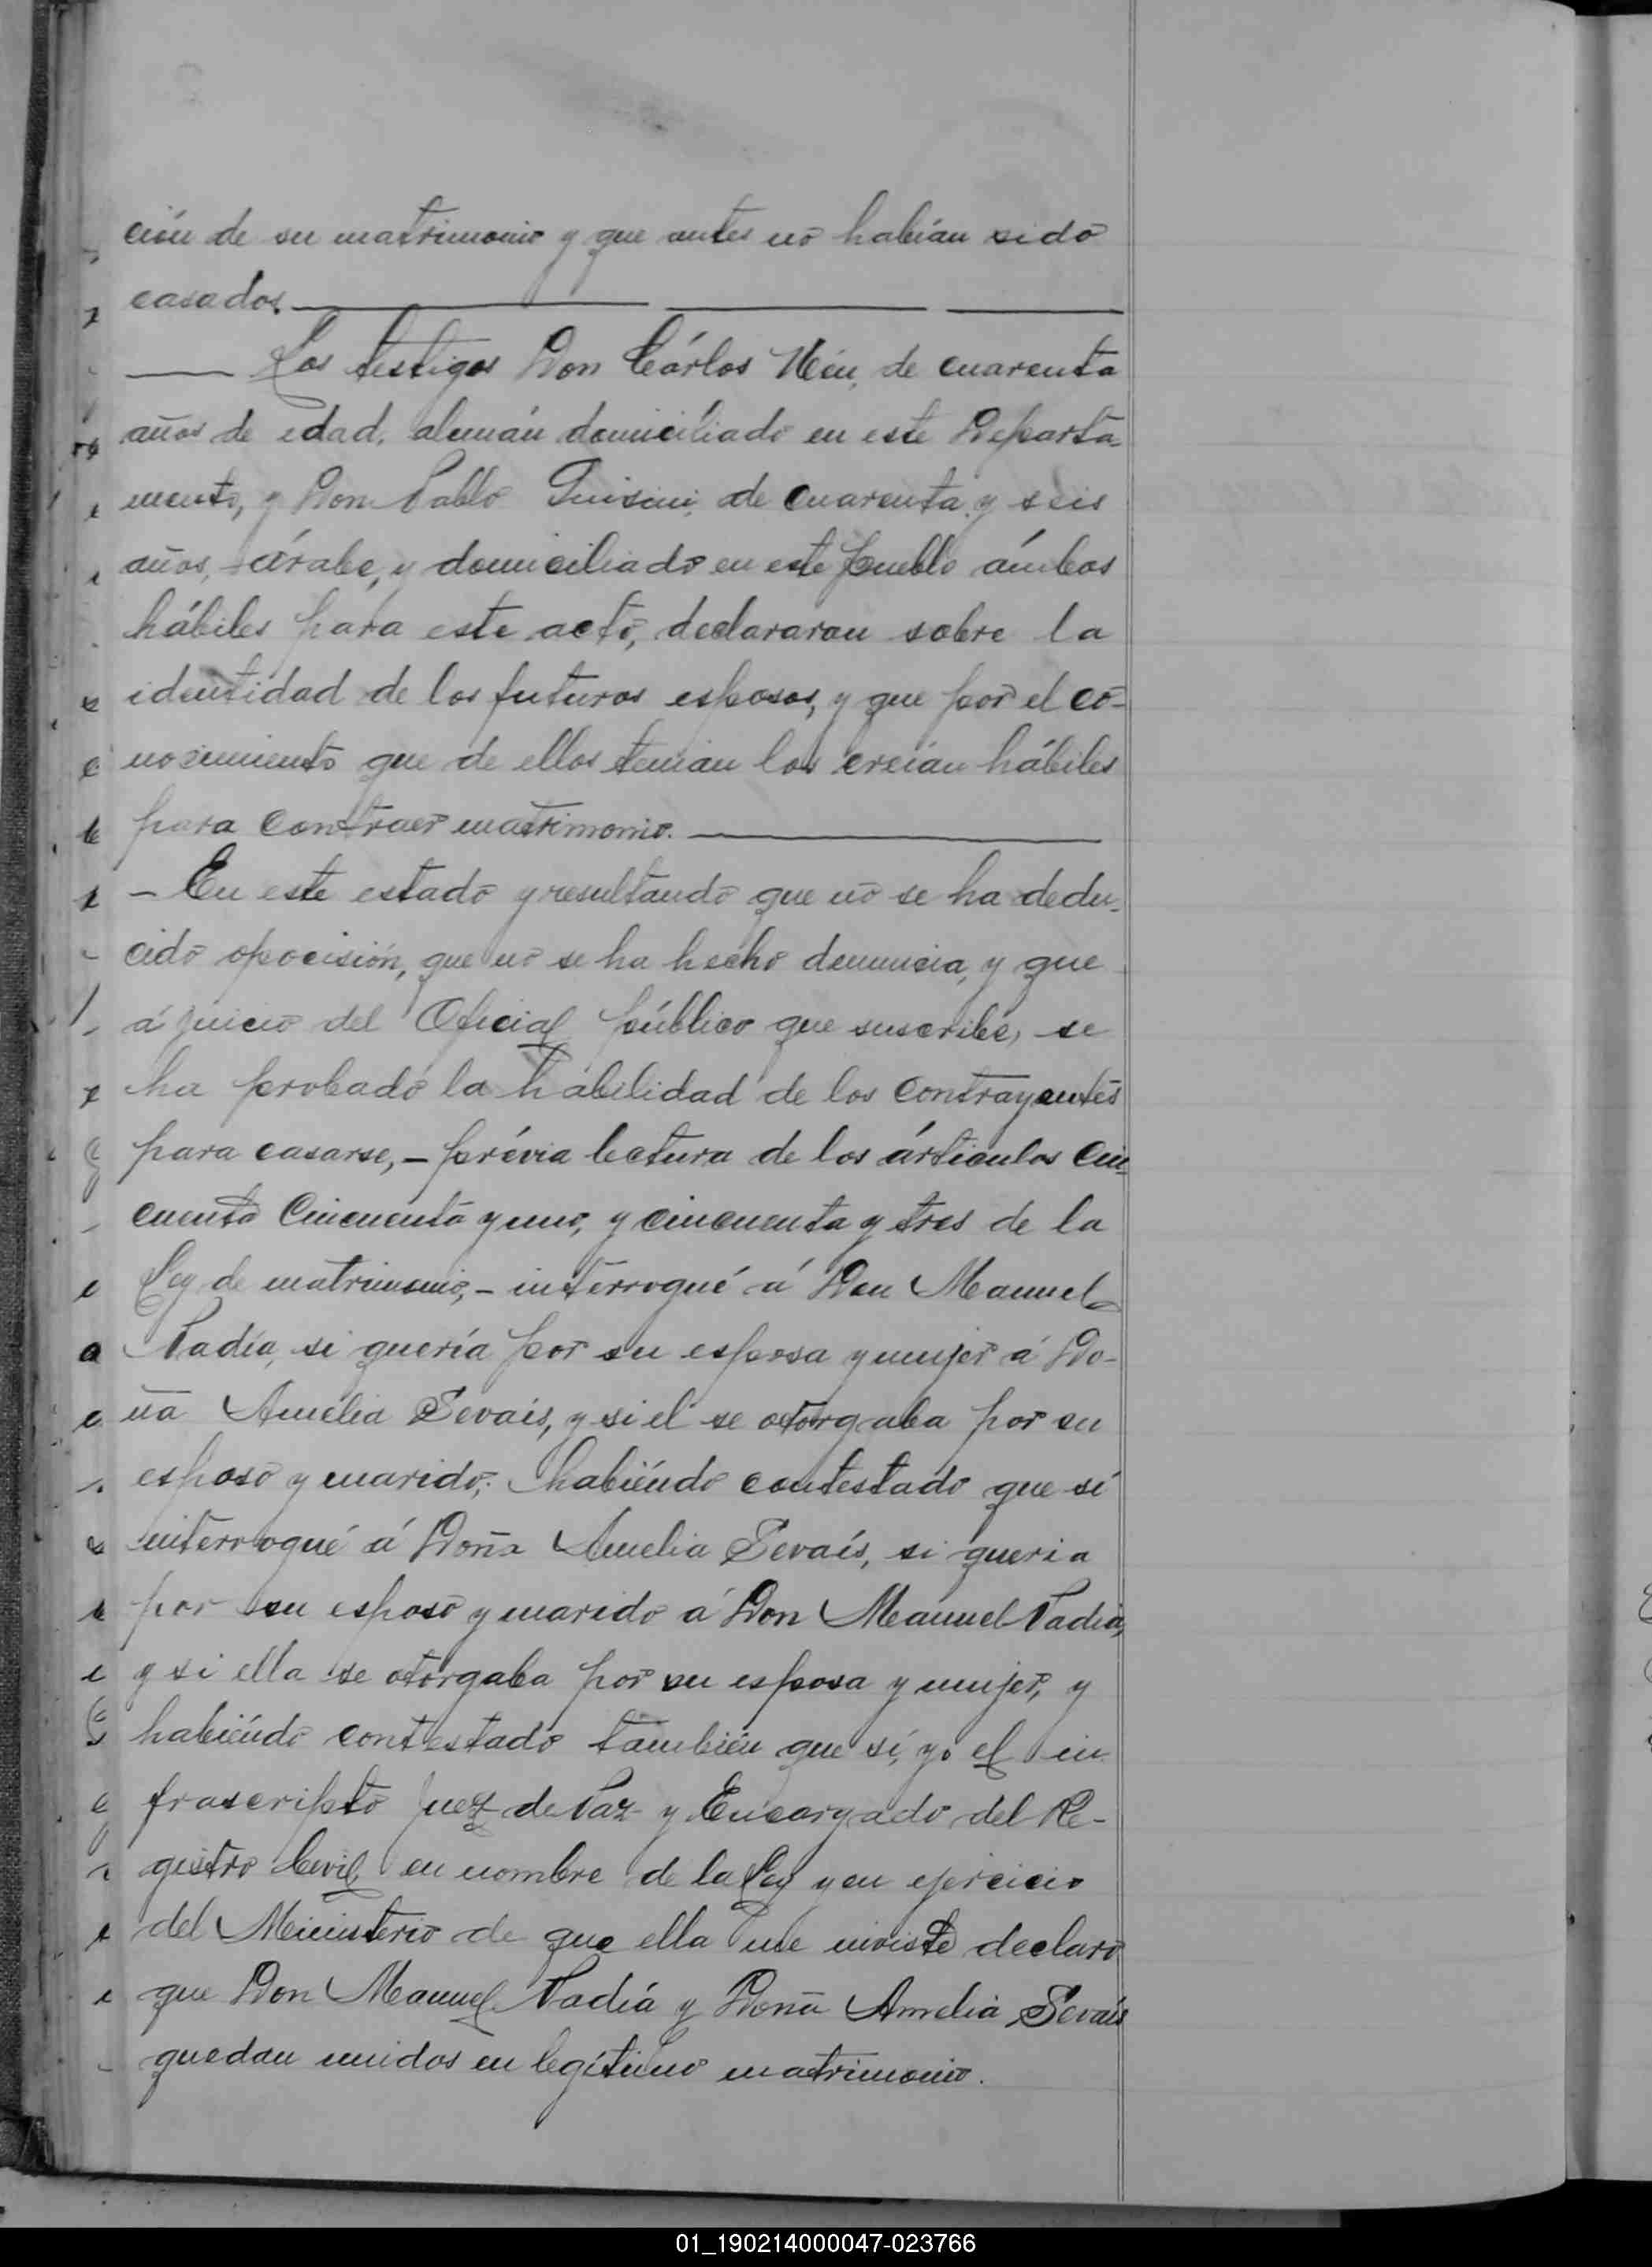 ción de su matrimonio y que antes no habían sido
casados.
Los testigos Don Cárlos Hein, de cuarenta
años de edad, alemán domiciliado en este Departa-
mento, y Don Pablo de cuarenta y seis
años, árabe, y domiciliado en este pueblo ámbos
hábiles para este acto, declararon sobre la
identidad de los futuros esposos, y que por el co-
nocimiento que de ellos tenian los creían hábiles
para contraer matrimonio.
- En este estado y resultando que no se ha dedu-
cido oposición, que no se ha hecho denuncia, y que
á juicio del Oficial público que suscribe, se
ha probado la habilidad de los contrayentes
para casarse, - prévia lectura de los árticulos cin-
cuenta cincuenta y uno, y cincuenta y tres de la
Ley de matrimonio, - interrogué á Don Manuel
Padía, si quería por su esposa y mujer á Do-
ña Amelia Sevaís, y si el se otorgaba por su
esposo y marido; habiéndo contestado que sí
interrogué á Doña Amelia Sevaís, si queria
por su esposo y marido á Don Manuel Padía,
y si ella se otorgaba por su esposa y mujer, y
habiéndo contestado también que sí, yo el in
frascripto Juez de Paz y Encargado del Re-
gistro Civil en nombre de la Ley y en ejercicio
del Ministerio de que ella me inviste declaro
que Don Manuel Padía y Doña Amelia Sevaís
quedan unidos en legítimo matrimonio.
01_190214000047-023766